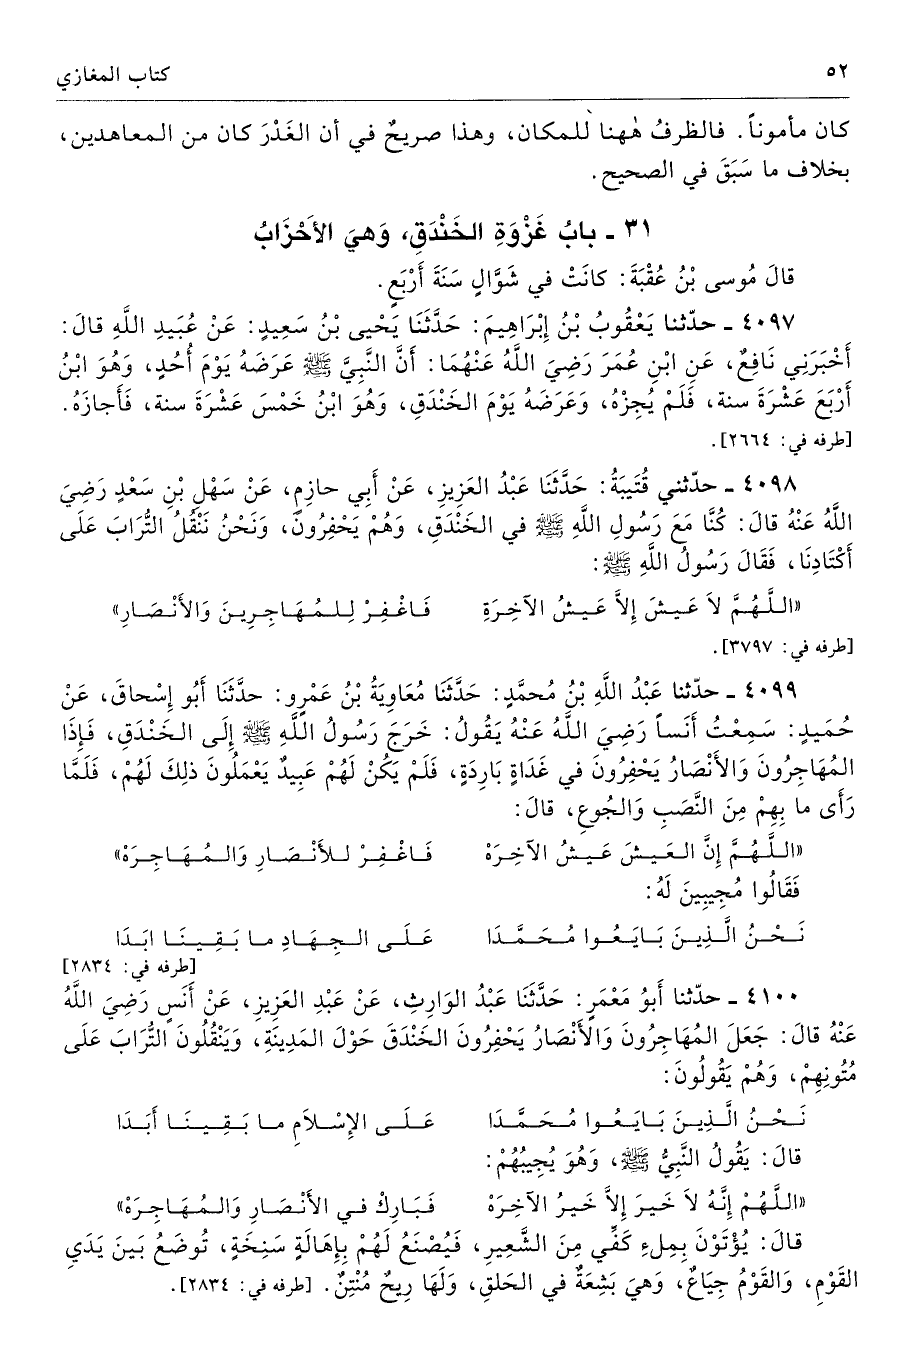 ٥٢ كتاب المغازي
كان مأموناً. فالظرفُ هٰهنا للمكان، وهذا صريحٌ في أن الغَدْرَ كان من المعاهدين،
بخلاف ما سَبَقَ في الصحيح.
٣١ ـ بابُ غَزْوَةِ الخَنْدَقِ، وَهيَ الأَحْزَابُ
قالَ مُوسى بْنُ عُقْبَةَ: كانَتْ في شَوَّالٍ سَنَةَ أَرْبَعٍ.
٤٠٩٧ ـ حدّثنا يَعْقُوبُ بْنُ إِبْرَاهِيمَ: حَدَّثَنَا يَحْيى بْنُ سَعِيدٍ: عَنْ عُبَيدِ اللَّهِ قالَ:
أَخْبَرَنِي نَافِعٌ، عَنِ ابْنِ عُمَرَ رَضِيَ اللَّهُ عَنْهُمَا: أَنَّ النَّبِيَّ ﷺ عَرَضَهُ يَوْمَ أُحُدٍ، وَهُوَ ابْنُ
أَرْبَعَ عَشْرَةَ سنة، فَلَمْ يُجِزْهُ، وَعَرَضَهُ يَوْمَ الخَنْدَقِ، وَهُوَ ابْنُ خَمْسَ عَشْرَةَ سنة، فَأَجازَهُ.
[طرفه في: ٢٦٦٤].
٤٠٩٨ ـ حدّثني قُتَيبَةُ: حَدَّثَنَا عَبْدُ العَزِيزِ، عَنْ أَبِي حازِمٍ، عَنْ سَهْلِ بْنِ سَعْدٍ رَضِيَ
اللَّهُ عَنْهُ قالَ: كُنَّا مَعَ رَسُولِ اللَّهِ ﷺ في الخَنْدَقِ، وَهُمْ يَحْفِرُونَ، وَنَحْنُ نَنْقُلُ التُّرَابَ عَلَى
أَكْتَادِنَا، فَقَالَ رَسُولُ اللَّهِ ﷺ:
«اللَّهُمَّ لاَ عَيشَ إِلاَّ عَيشُ الآخِرَةِ فَاغْفِرْ لِلمُهَاجِرِينَ وَالأَنْصَارِ»
[طرفه في: ٣٧٩٧].
٤٠٩٩ ـ حدّثنا عَبْدُ اللَّهِ بْنُ مُحمَّدٍ: حَدَّثَنَا مُعَاوِيَةُ بْنُ عَمْرٍو: حدَّثَنَا أَبُو إِسْحاقَ، عَنْ
حُمَيدٍ: سَمِعْتُ أَنَساً رَضِيَ اللَّهُ عَنْهُ يَقُولُ: خَرَجَ رَسُولُ اللَّهِ ﷺ إِلَى الخَنْدَقِ، فَإِذَا
المُهَاجِرُونَ وَالأَنْصَارُ يَحْفِرُونَ في غَدَاةٍ بارِدَةٍ، فَلَمْ يَكُنْ لَهُمْ عَبِيدٌ يَعْمَلُونَ ذلِكَ لَهُمْ، فَلَمَّا
رَأَى ما بِهِمْ مِنَ النَّصَبِ وَالجُوعِ، قالَ:
«اللَّهُمَّ إِنَّ العَيشَ عَيشُ الآخِرَهْ فَاغْفِرْ لِلأَنْصَارِ وَالمُهَاجِرَهْ»
فَقَالُوا مُجِيبِينَ لَهُ:
نَحْنُ الَّذِينَ بَايَعُوا مُحَمَّدَا عَلَى الجِهَادِ ما بَقِينَا ابَدَا
[طرفه في: ٢٨٣٤]
٤١٠٠ ـ حدّثنا أَبُو مَعْمَرٍ: حَدَّثَنَا عَبْدُ الوَارِثِ، عَنْ عَبْدِ العَزِيزِ، عَنْ أَنَسٍ رَضِيَ اللَّهُ
عَنْهُ قالَ: جَعَلَ المُهَاجِرُونَ وَالأَنْصَارُ يَحْفِرُونَ الخَنْدَقَ حَوْلَ المَدِينَةِ، وَيَنْقُلُونَ التُّرَابَ عَلَى
مُتُونِهِمْ، وَهُمْ يَقُولُونَ:
نَحْنُ الَّذِينَ بَايَعُوا مُحَمَّدَا عَلَى الإِسْلاَمِ ما بَقِينَا أَبَدَا
قالَ: يَقُولُ النَّبِيُّ ﷺ، وَهُوَ يُجِيبُهُمْ:
«اللَّهُمَّ إِنَّهُ لاَ خَيرَ إِلاَّ خَيرُ الآخِرَهْ فَبَارِكْ في الأَنْصَارِ وَالمُهَاجِرَهْ»
قالَ: يُؤْتَوْنَ بِمِلءِ كَفِّي مِنَ الشَّعِيرِ، فَيُصْنَعُ لَهُمْ بِإِهَالَةٍ سَنِخَةٍ، تُوضَعُ بَينَ يَدَيِ
القَوْمِ، وَالقَوْمُ جِيَاعٌ، وَهيَ بَشِعَةٌ في الحَلقِ، وَلَهَا رِيحٌ مُنْتِنٌ. [طرفه في: ٢٨٣٤].